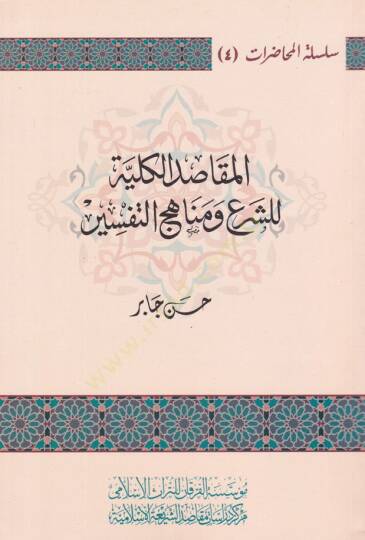 سلسلة المحاضرات (٤)
المقاصد الكلية
للشرع ومناهج التفسير
حسن جابر
مؤسسة الفرقان للتراث الإسلامي
مركز دراسات مقاصد الشريعة الإسلامية